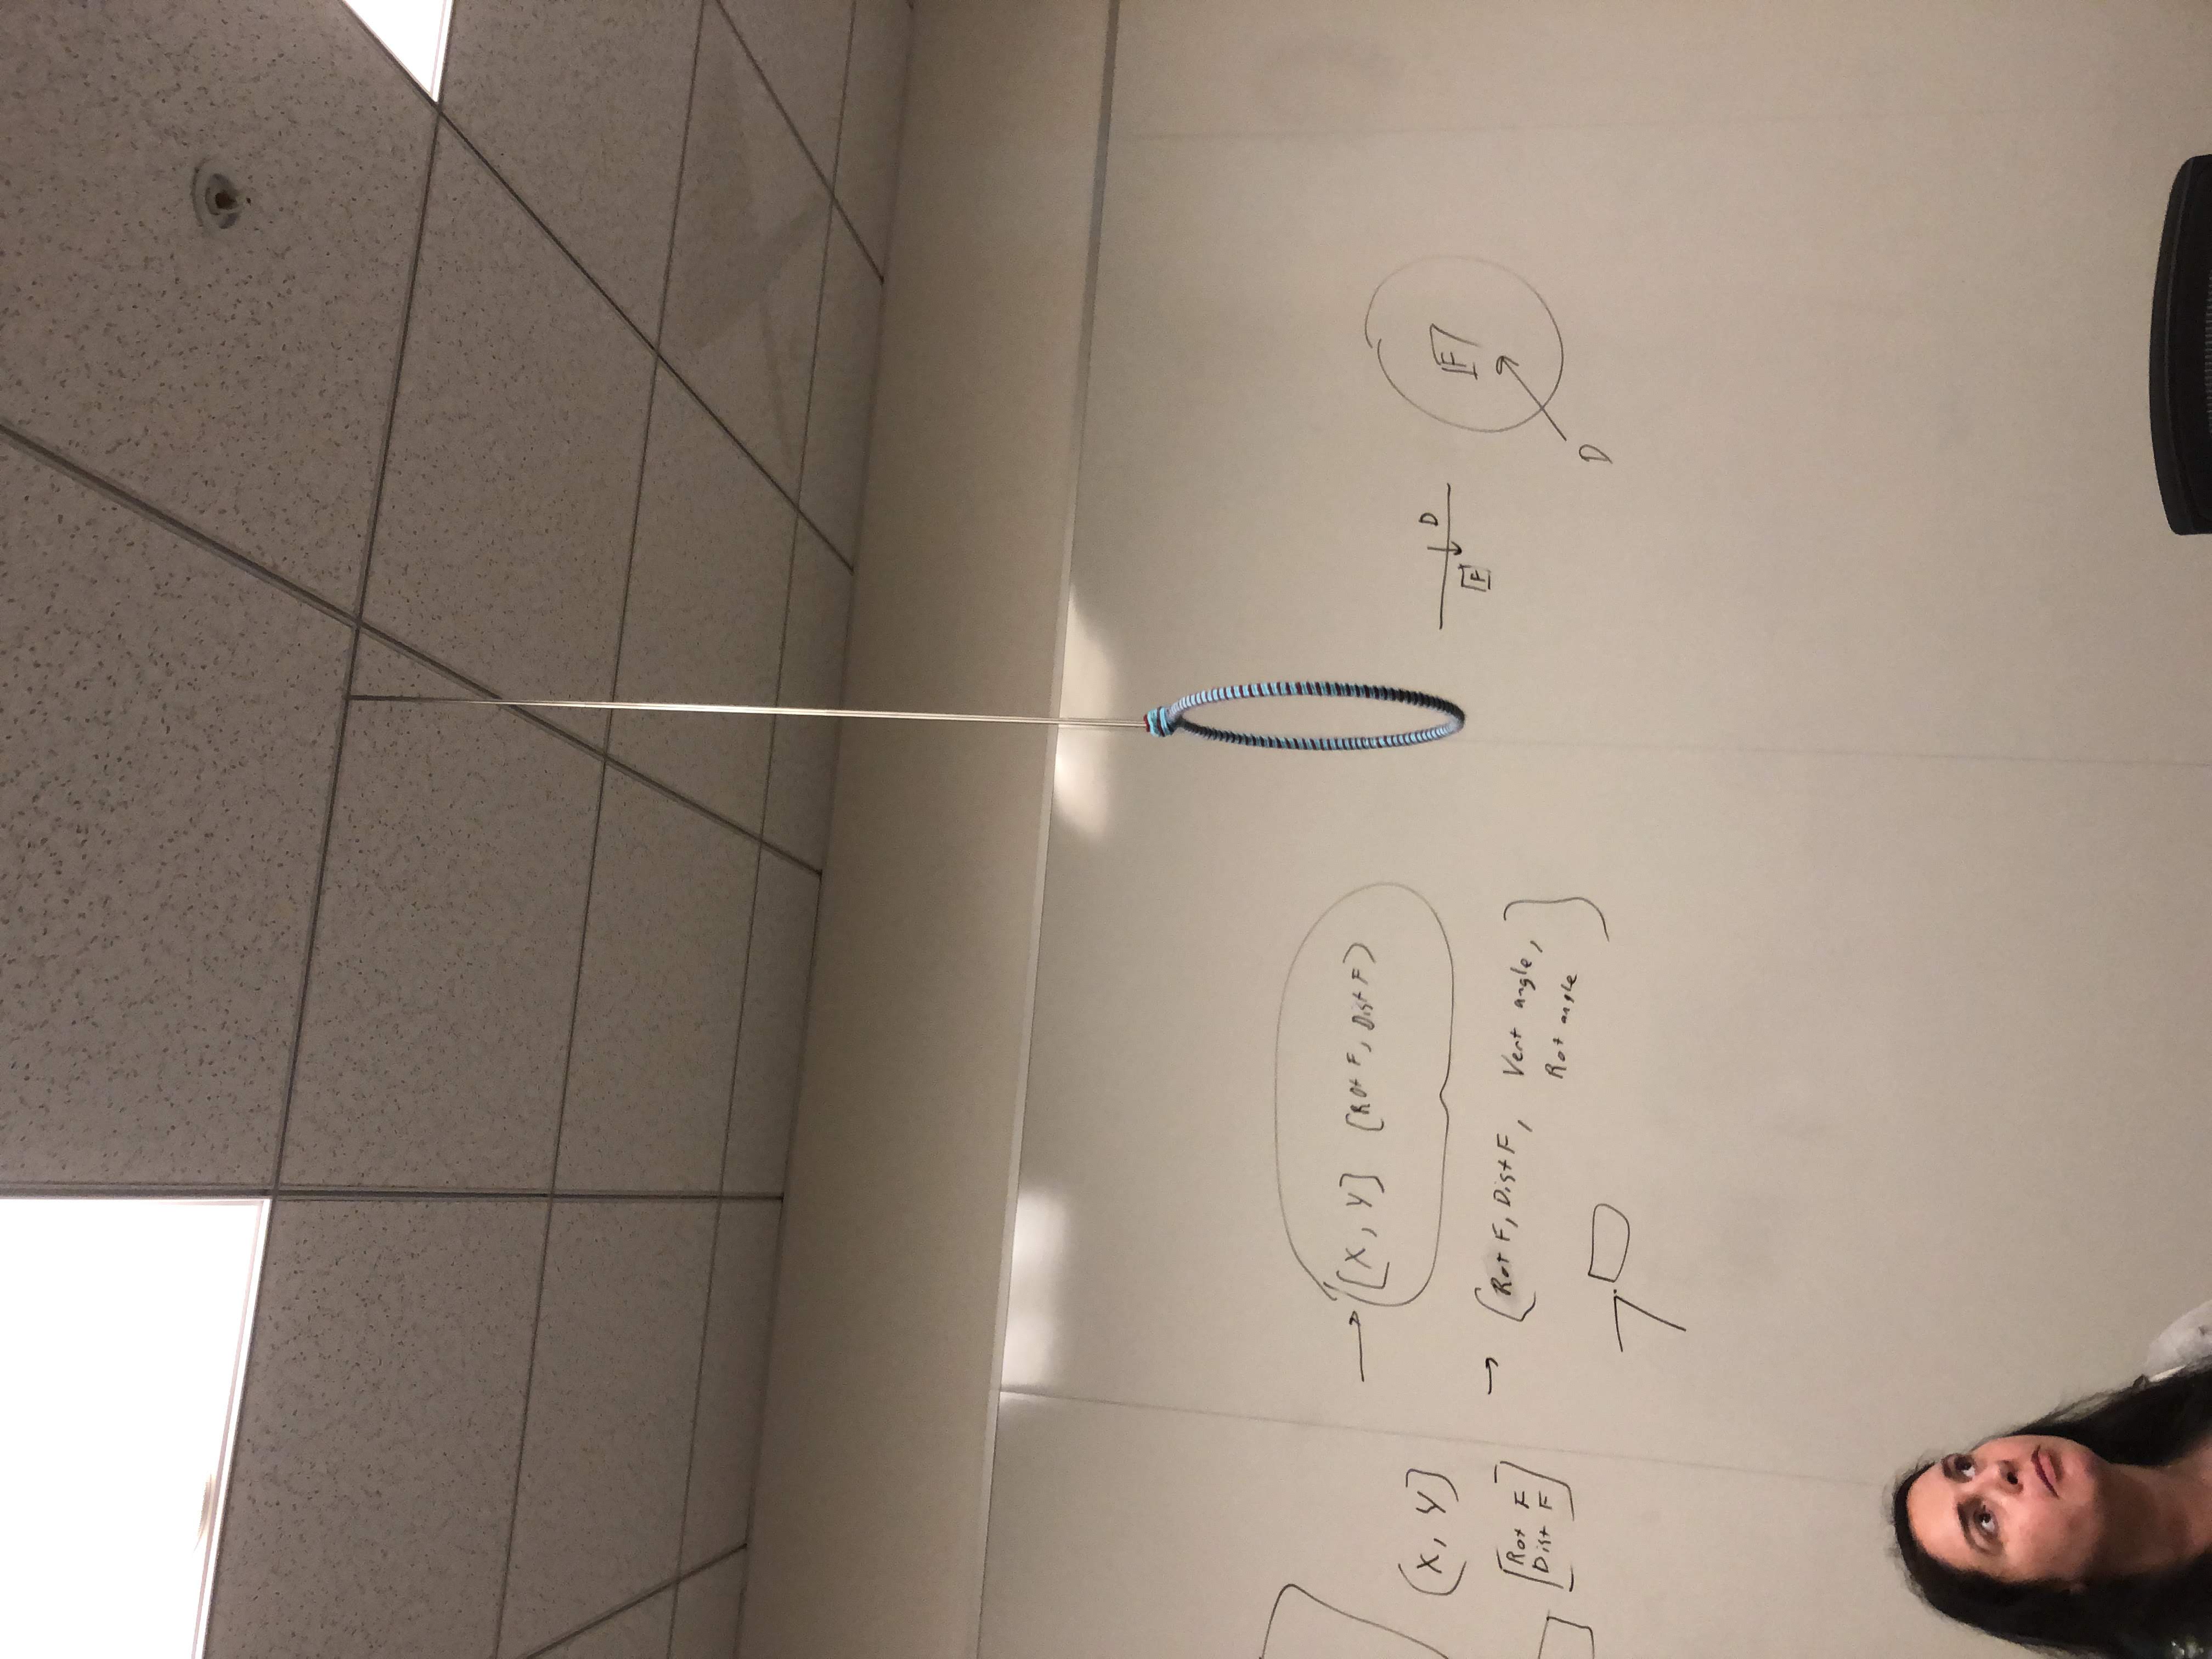 (X, Y]
[Rot F
Dist F]
→ [X, Y] (Rot F, Dist F)
→ [Rot F, Dist F, Vert angle,
Rot angle]
D
F
F
D